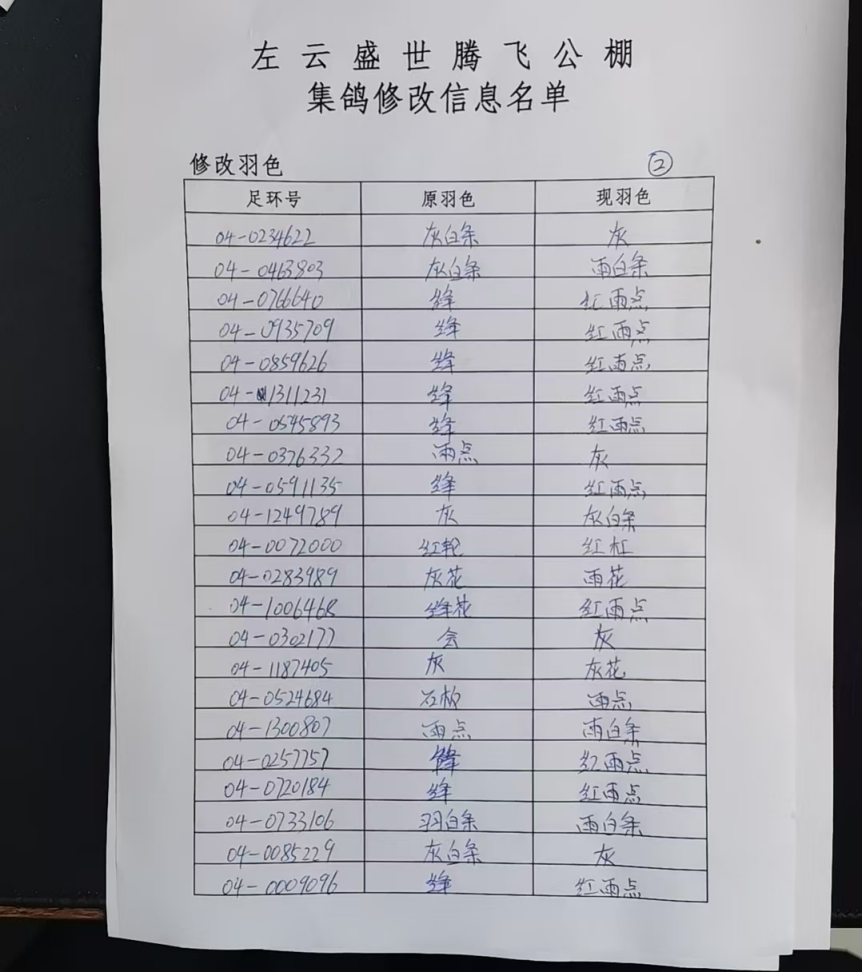 左云盛世腾飞公棚
集鸽修改信息名单
修改羽色 ②
足环号 原羽色 现羽色
04-0234622 灰白条 灰
04-0463803 灰白条 雨白条
04-0766640 绛 红雨点
04-0935709 绛 红雨点
04-0859626 绛 红雨点
04-1311231 绛 红雨点
04-0545893 绛 红雨点
04-0376332 雨点 灰
04-0591135 绛 红雨点
04-1249789 灰 灰白条
04-0072000 红轮 红杠
04-0283989 灰花 雨花
04-1006468 绛花 红雨点
04-0302177 灰
04-1187405 灰 灰花
04-0524684 石板 雨点
04-1300807 雨点 雨白条
04-0257757 绛 红雨点
04-0720184 绛 红雨点
04-0733106 羽白条 雨白条
04-0085229 灰白条 灰
04-0009096 绛 红雨点